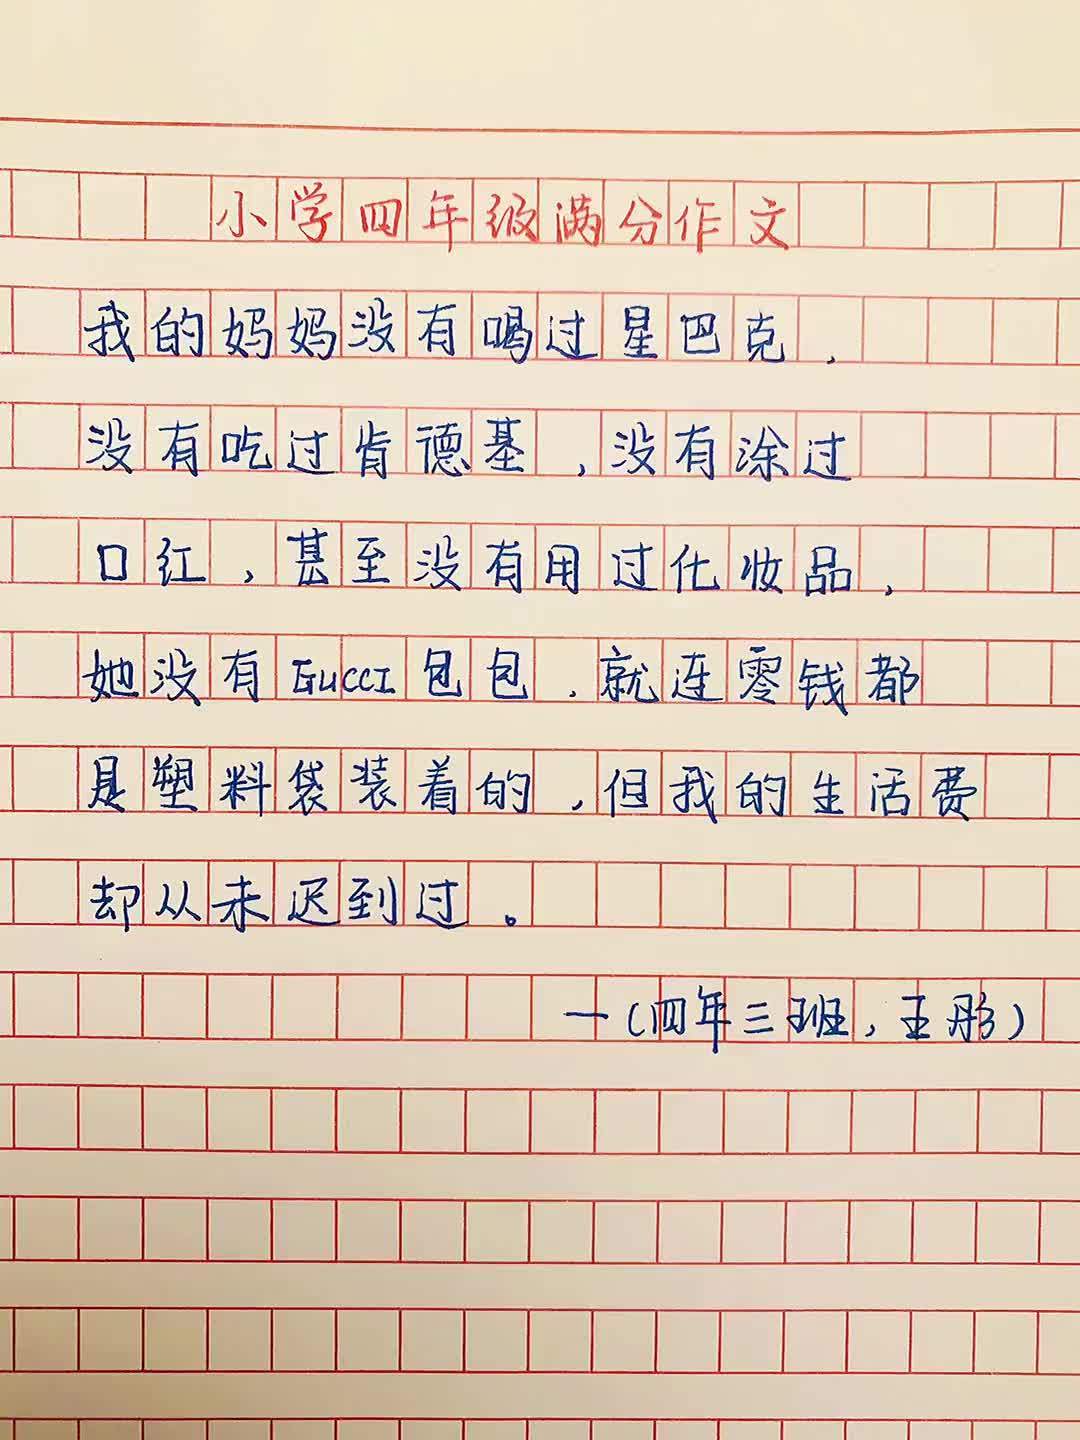 小学四年级满分作文
我的妈妈没有喝过星巴克，
没有吃过肯德基，没有涂过
口红，甚至没有用过化妆品，
她没有GUCCI包包，就连零钱都
是塑料袋装着的，但我的生活费
却从未迟到过。
一(四年三班，王彤)